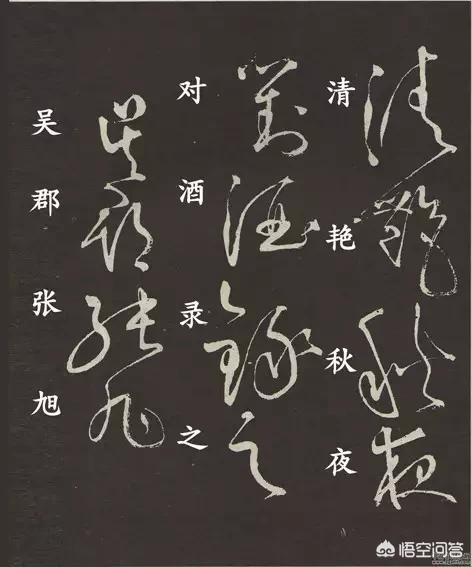 清艳秋夜
对酒录之
吴郡张旭
悟空问答